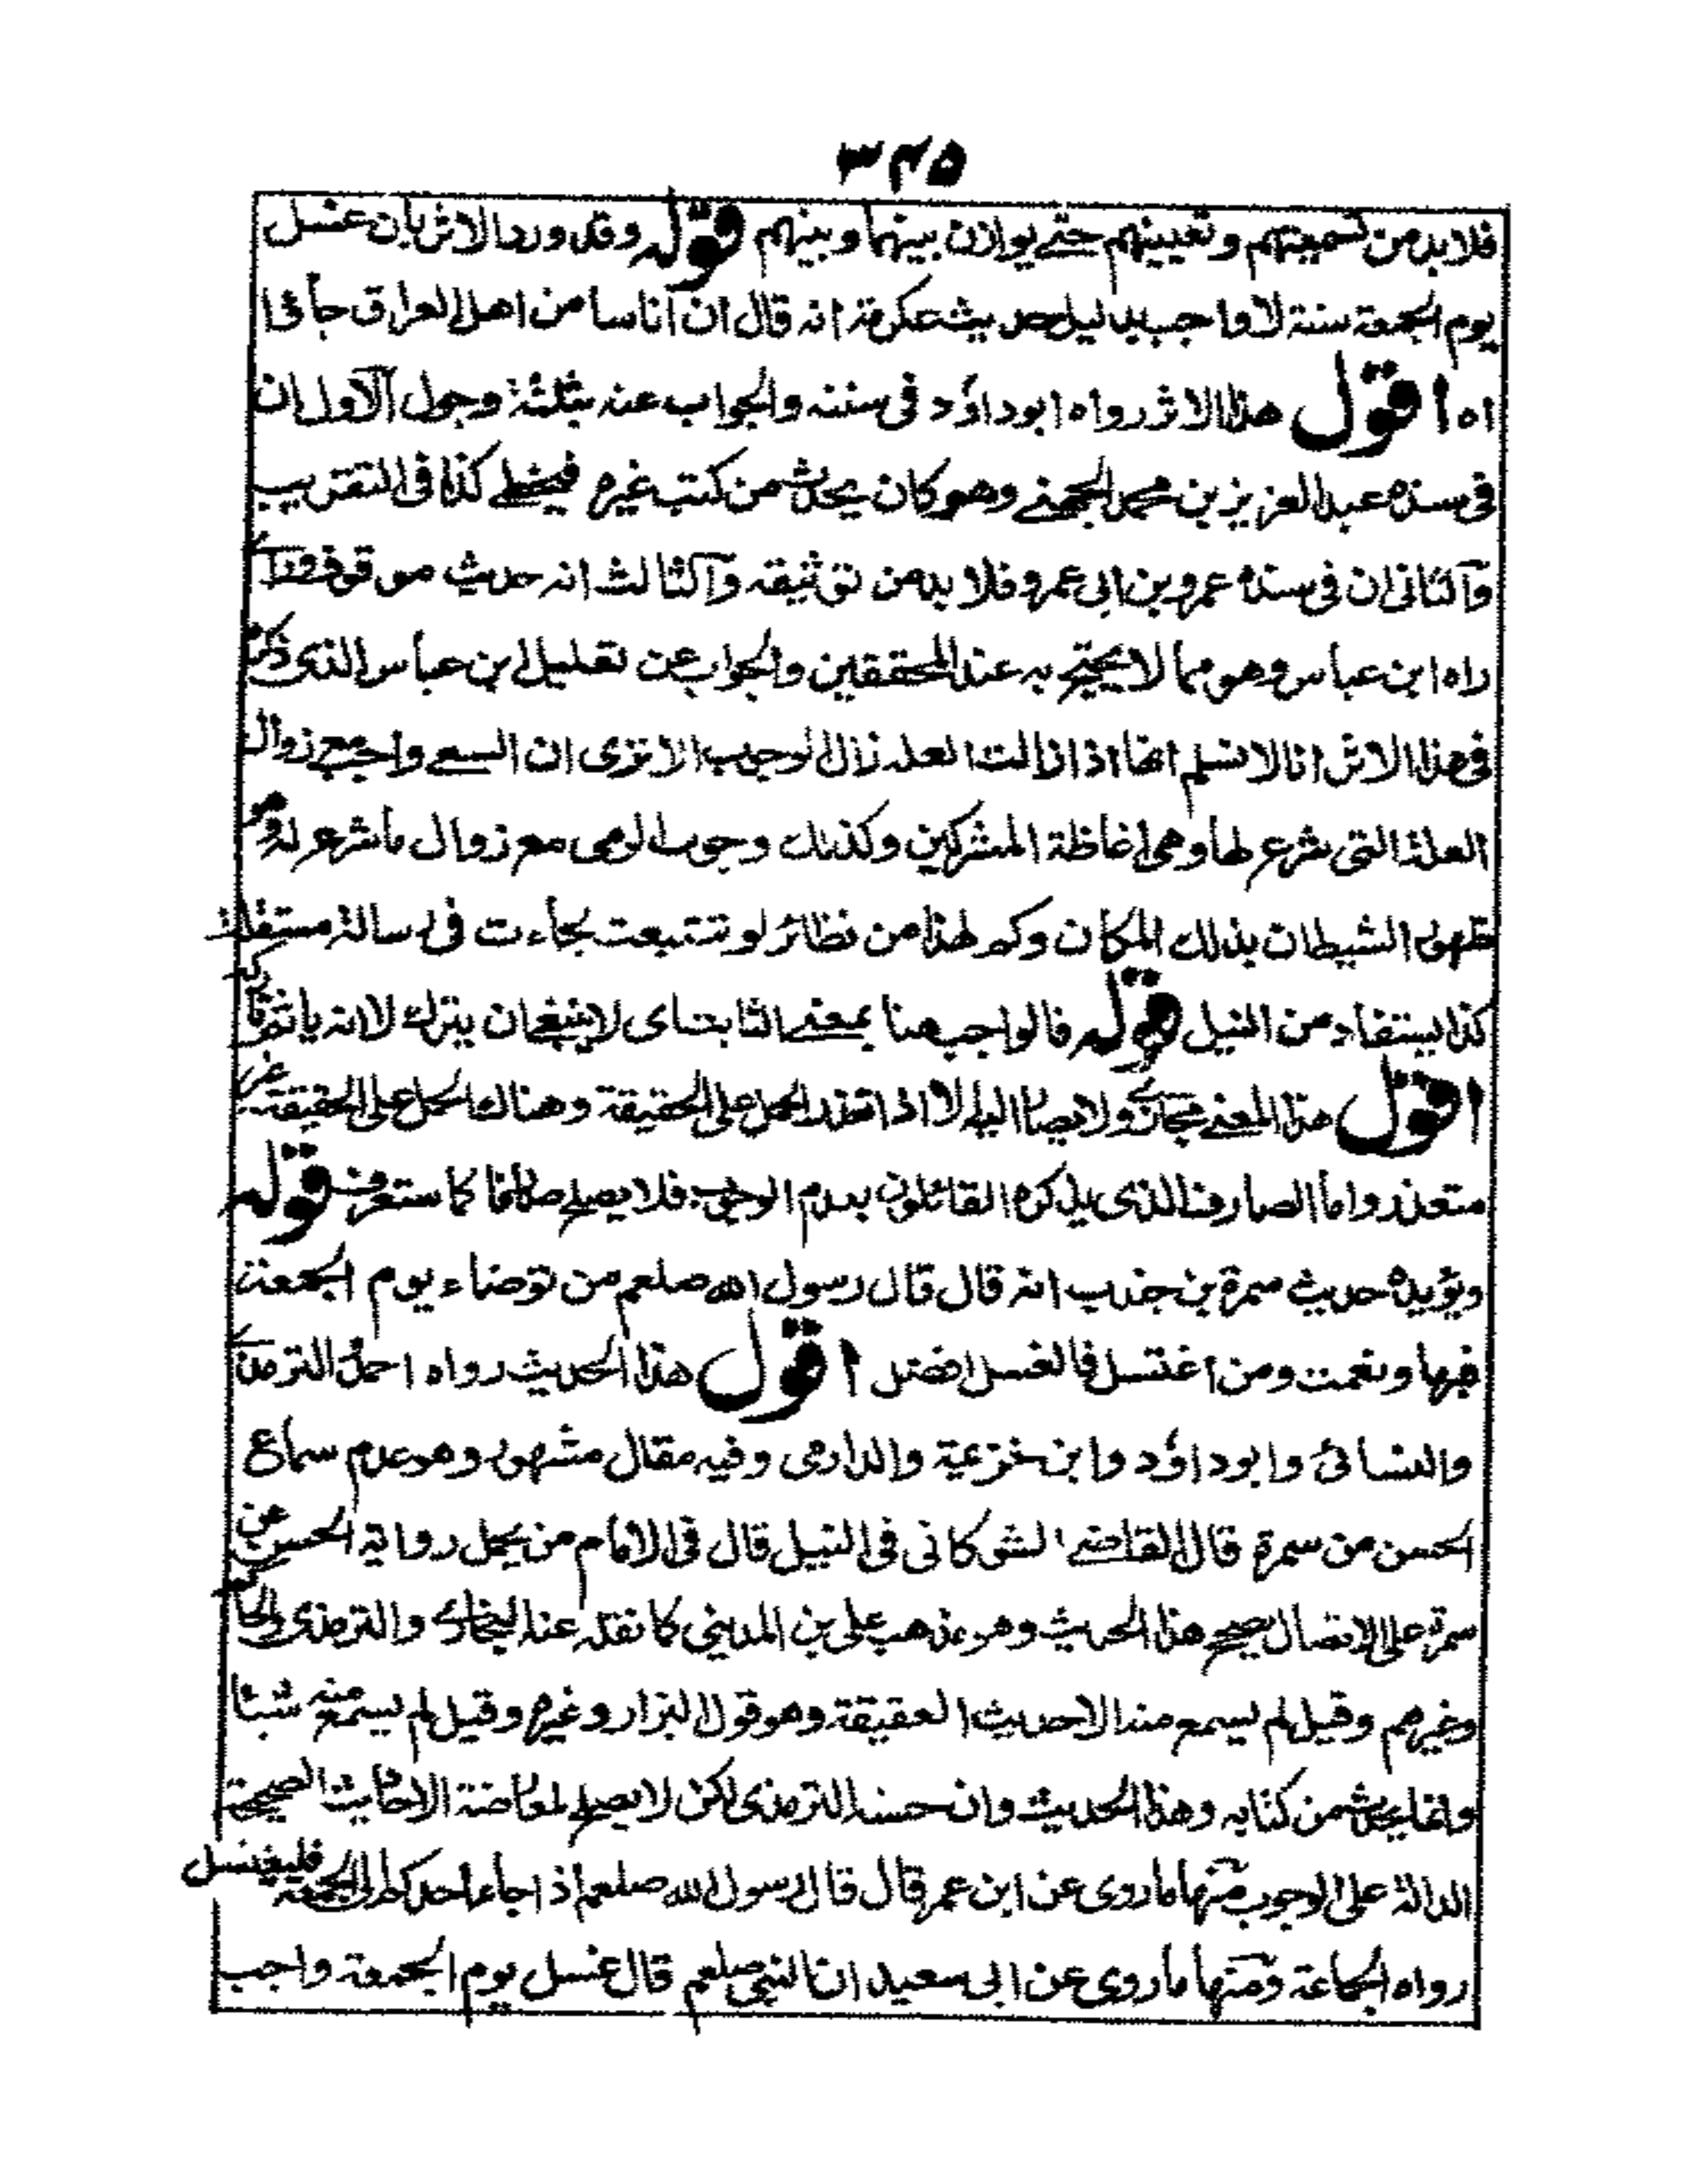 ٣٤٥
فلابد من تسميتهم وتعيينهم حتے يوازن بينهما وبينهم قوله وقد ورد الاثر بان غسل
يوم الجمعة سنة لا واجب بدليل حديث عكرمة انه قال ان اناسا من اهل العراق جاؤا
اه اقول هذا الاثر رواه ابو داؤد فى سننه والجواب عنه بثلثة وجوه الاول ان
فى سنده عبد العزيز بن محمد الجهنے وهو كان يحدث من كتب غيره فيخطے كذا فى التقريب
والثانى ان فى سنده عمرو بن ابى عمرو فلا بد من توثيقه والثالث انه حديث موقوف و
راه ابن عباس وهو مما لا يحتج به عند المحققين والجواب عن تعليل ابن عباس الذى ذكره
فى هذا الاثر انا لا نسلم انها اذا زالت العلة زال الوجوب الا ترى ان السعے واجب مع زوال
العلة التى شرع لها وهى اغاظة المشركين وكذلك وجوب الرمى مع زوال ما شرع له وهو
ظهور الشيطان بذلك المكان وكم لهذا من نظائر لو تتبعت لجاءت فى رسالة مستقلة
كذا يستفاد من النيل قوله فالواجب هنا بمعنے الثابت اى لا ينبغے ان يترك لا انه ياثم تاركه
اقول هذا المعنے مجازى ولا يصار اليه الا اذا تعذر الحمل على الحقيقة وهناك الحمل على الحقيقة غير
متعذر واما الصارف الذى يذكره القائلون بعدم الوجوب فلا يصلح صارفا كما ستعرف قوله
ويؤيده حديث سمرة بن جندب انه قال قال رسول الله صلعم من توضاء يوم الجمعة
فبها ونعمت ومن اغتسل فالغسل افضل اقول هذا الحديث رواه احمد والترمذى
والنسائى وابو داؤد وابن خزيمة والدارمى وفيه مقال مشهور وهو عدم سماع
الحسن من سمرة قال القاضے الشوكانى فى النيل قال فى الامام من يحمل رواية الحسن عن
سمرة على الاتصال يصحح هذا الحديث وهو مذهب على بن المدينى كما نقله عنه البخارى والترمذى والحاكم
وغيرهم وقيل لم يسمع منه الا حديث العقيقة وهو قول البزار وغيره وقيل لم يسمع منه شيئا
وانما يحدث من كتابه وهذا الحديث وان حسنه الترمذى لكن لا يصلح لمعارضة الاحاديث الصحيحة
الدالة على الوجوب منها ما روى عن ابن عمر قال قال رسول الله صلعم اذا جاء احدكم الى الجمعة فليغتسل
رواه الجماعة ومنها ما روى عن ابى سعيد ان النبى صلعم قال غسل يوم الجمعة واجب